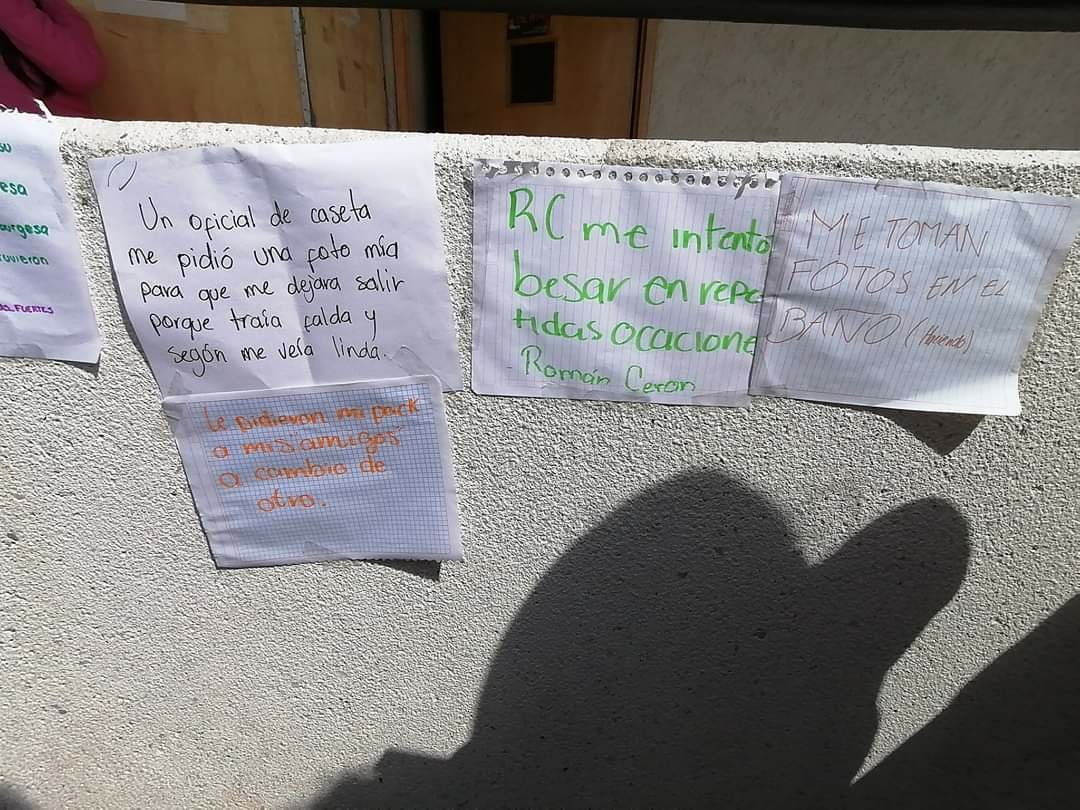 su
esa
urgesa
tuvieron
FUERTES
Un oficial de caseta
me pidió una foto mía
para que me dejara salir
porque traía falda y
según me veía linda.
Le pidieron mi pack
a mis amigos
a cambio de
otro.
RC me intentó
besar en repe
tidas ocacione
Román Ceron
ME TOMAN
FOTOS EN EL
BAÑO